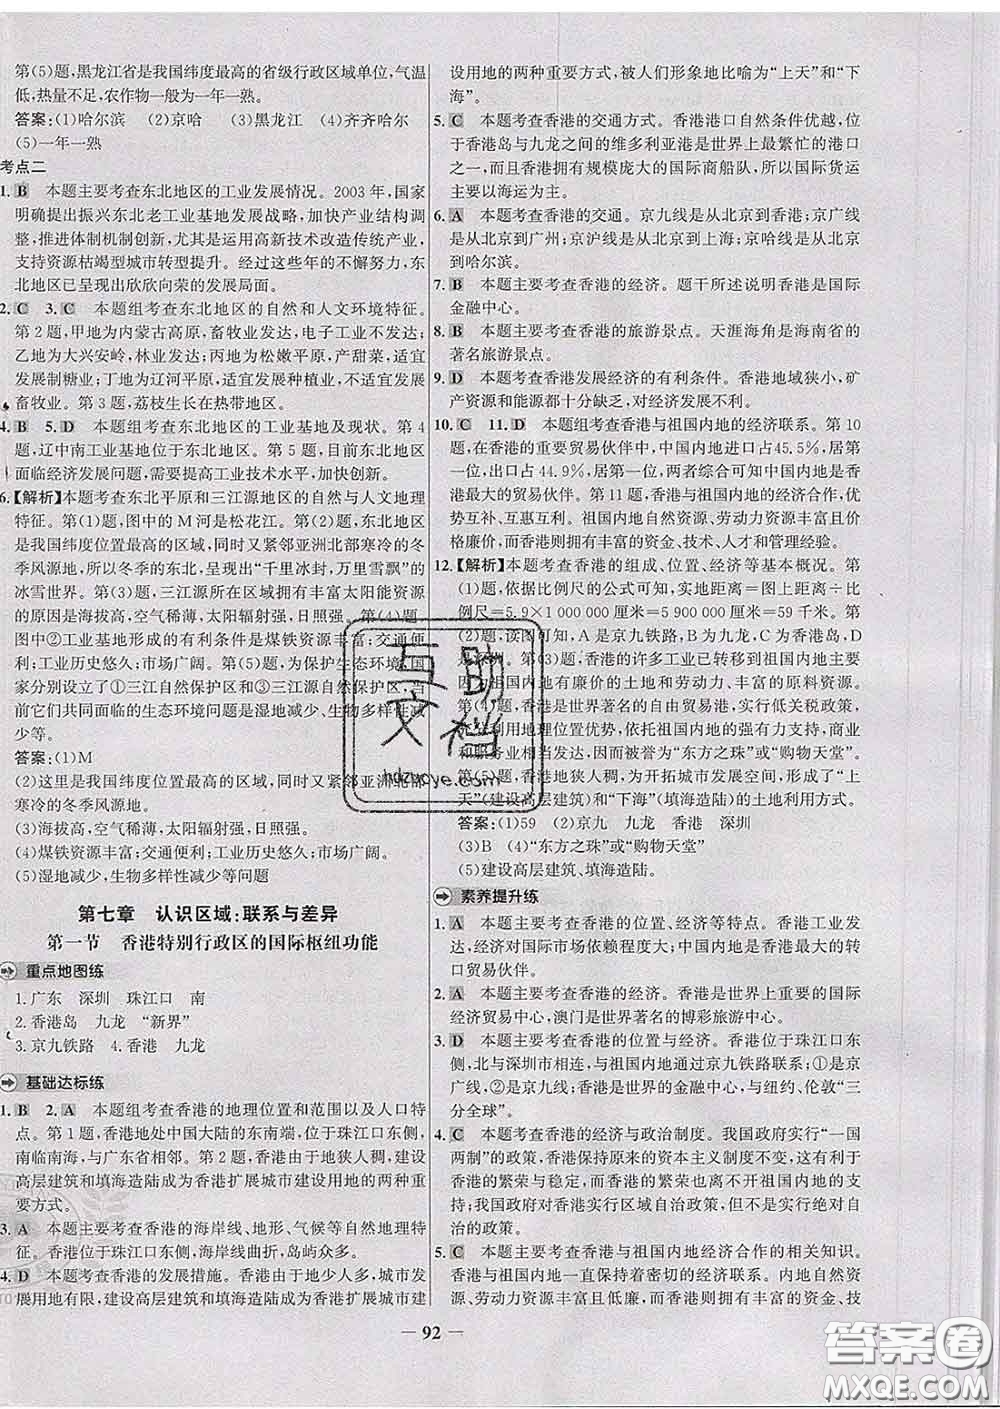 第(5)题,黑龙江省是我国纬度最高的省级行政区域单位,气温
低,热量不足,农作物一般为一年一熟。
答案:(1)哈尔滨 (2)京哈 (3)黑龙江 (4)齐齐哈尔
(5)一年一熟
考点二
1. B 本题主要考查东北地区的工业发展情况。2003年,国家
明确提出振兴东北老工业基地发展战略,加快产业结构调
整,推进体制机制创新,尤其是运用高新技术改造传统产业,
支持资源枯竭型城市转型提升。经过这些年的不懈努力,东
北地区已呈现出欣欣向荣的发展局面。
2. C 3. C 本题组考查东北地区的自然和人文环境特征。
第2题,甲地为内蒙古高原,畜牧业发达,电子工业不发达;
乙地为大兴安岭,林业发达;丙地为松嫩平原,产甜菜,适宜
发展制糖业;丁地为辽河平原,适宜发展种植业,不适宜发展
畜牧业。第3题,荔枝生长在热带地区。
4. B 5. D 本题组考查东北地区的工业基地及现状。第4
题,辽中南工业基地位于东北地区。第5题,目前东北地区
面临经济发展问题,需要提高工业技术水平,加快创新。
6.【解析】本题考查东北平原和三江源地区的自然与人文地理
特征。第(1)题,图中的M河是松花江。第(2)题,东北地区
是我国纬度位置最高的区域,同时又紧邻亚洲北部寒冷的冬
季风源地,所以冬季的东北,呈现出“千里冰封,万里雪飘”的
冰雪世界。第(3)题,三江源地区拥有丰富太阳能资源
的原因是海拔高,空气稀薄,太阳辐射强,日照强。第(4)题,
图中②工业基地形成的有利条件是煤铁资源丰富;交通便
利;工业历史悠久;市场广阔。第(5)题,为保护生态环境,国
家分别设立了①三江自然保护区和③三江源自然保护区,目
前它们共同面临的生态环境问题是湿地减少、生物多样性减
少等。
答案:(1)M
(2)这里是我国纬度位置最高的区域,同时又紧邻亚洲北部
寒冷的冬季风源地。
(3)海拔高,空气稀薄,太阳辐射强,日照强。
(4)煤铁资源丰富;交通便利;工业历史悠久;市场广阔。
(5)湿地减少,生物多样性减少等问题
第七章 认识区域:联系与差异
第一节 香港特别行政区的国际枢纽功能
重点地图练
1.广东 深圳 珠江口 南
2.香港岛 九龙 “新界”
3.京九铁路 4.香港 九龙
基础达标练
1. B 2. A 本题组考查香港的地理位置和范围以及人口特
点。第1题,香港地处中国大陆的东南端,位于珠江口东侧,
南临南海,与广东省相邻。第2题,香港地狭人稠,建设
高层建筑和填海造陆成为香港扩展城市建设用地的两种重
要方式。
3. A 本题主要考查香港的海岸线、地形、气候等自然地理特
征。香港位于珠江口东侧,海岸线曲折,岛屿众多。
4. D 本题考查香港的发展措施。香港由于地少人多,城市发
展用地有限,建设高层建筑和填海造陆成为香港扩展城市建
设用地的两种重要方式,被人们形象地比喻为“上天”和“下
海”。
5. C 本题考查香港的交通方式。香港港口自然条件优越,位
于香港岛与九龙半岛之间的维多利亚港是世界上最繁忙的港口
之一,而且香港拥有规模庞大的国际商船队,所以国际货运
主要以海运为主。
6. A 本题考查香港的交通。京九线是从北京到香港;京广线
是从北京到广州;京沪线是从北京到上海;京哈线是从北京
到哈尔滨。
7. B 本题主要考查香港的经济。题干所述说明香港是国际
金融中心。
8. B 本题主要考查香港的旅游景点。天涯海角是海南省的
著名旅游景点。
9. D 本题考查香港发展经济的有利条件。香港地域狭小,矿
产资源和能源都十分缺乏,对经济发展不利。
10. C 11. D 本题组考查香港与祖国内地的经济联系。第10
题,在香港的重要贸易伙伴中,中国内地进口占45.5%,居
第一位,出口占44.9%,居第一位,两者综合可知中国内地是香
港最大的贸易伙伴。第11题,香港与祖国内地的经济合作,优
势互补、互惠互利。祖国内地自然资源、劳动力资源丰富且价
格廉价,而香港则拥有丰富的资金、技术、人才和管理经验。
12.【解析】本题考查香港的组成、位置、经济等基本概况。第
(1)题,依据比例尺的公式可知,实地距离=图上距离÷比
例尺=5.9×1 000 000 厘米=5 900 000 厘米=59 千米。第
(2)题,读图可知,A是京九铁路,B为九龙,C为香港岛,D
是深圳。第(3)题,香港的许多工业已转移到祖国内地,因为
祖国内地有廉价的土地和劳动力、丰富的原料资源。
第(4)题,香港是世界上著名的自由贸易港,实行低关税政策,
充分利用地理位置优势,依托祖国内地的强有力支持,商
业和服务业相当发达,因而被誉为“东方之珠”或“购物天堂”。
第(5)题,香港地狭人稠,为开拓城市发展空间,形成了“上
天”(建设高层建筑)和“下海”(填海造陆)的土地利用方式。
答案:(1)59 (2)京九 九龙 香港 深圳
(3)B (4)“东方之珠”或“购物天堂”
(5)建设高层建筑、填海造陆。
素养提升练
1. A 本题主要考查香港的位置、经济等特点。香港工业发
达,经济对国际市场依赖程度大;中国内地是香港最大的转
口贸易伙伴。
2. A 本题主要考查香港的经济。香港是世界上重要的国际
经济贸易中心,澳门是世界著名的博彩旅游中心。
3. D 本题主要考查香港的位置与经济。香港位于珠江口东
侧,北与深圳市相连,与祖国内地通过京九铁路联系;①是京
广线,②是京九线;香港是世界的金融中心,与纽约、伦敦“三
分全球”。
4. C 本题考查香港的经济与政治制度。我国政府实行“一国
两制”的政策,香港保持原来的资本主义制度不变,这有利于
香港的繁荣与稳定,而香港的繁荣也离不开祖国内地的支
持,所以我国政府对香港实行区域自治政策,但不是绝对自
治的政策。
5. C 本题主要考查香港与祖国内地经济合作的相关知识。
香港与祖国内地一直保持着密切的经济联系。祖国内地自
然资源、劳动力资源丰富且低廉,而香港则拥有丰富的资金、技
— 92 —
互助
文档
hdzuoye.com
答案圈
MXQE.COM